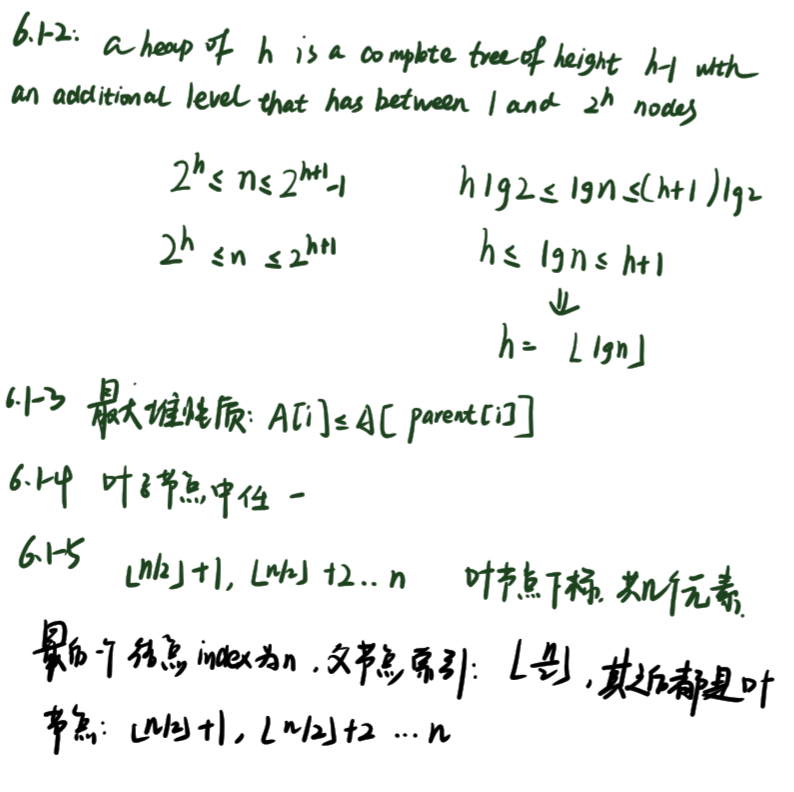 6.1-2: a heap of h is a complete tree of height h-1 with
an additional level that has between 1 and 2^h nodes
2^h ≤ n ≤ 2^{h+1}-1 h lg2 ≤ lgn ≤ (h+1) lg2
2^h ≤ n ≤ 2^{h+1} h ≤ lgn ≤ h+1
⇓
h = ⌊lgn⌋
6.1-3 最大堆性质: A[i] ≤ A[parent[i]]
6.1-4 叶子节点中任一
6.1-5 ⌊n/2⌋+1, ⌊n/2⌋+2..n 叶节点下标, 共n个元素.
最后一个结点index为n, 父节点索引: ⌊n/2⌋, 其之后都是叶
节点: ⌊n/2⌋+1, ⌊n/2⌋+2 ...n